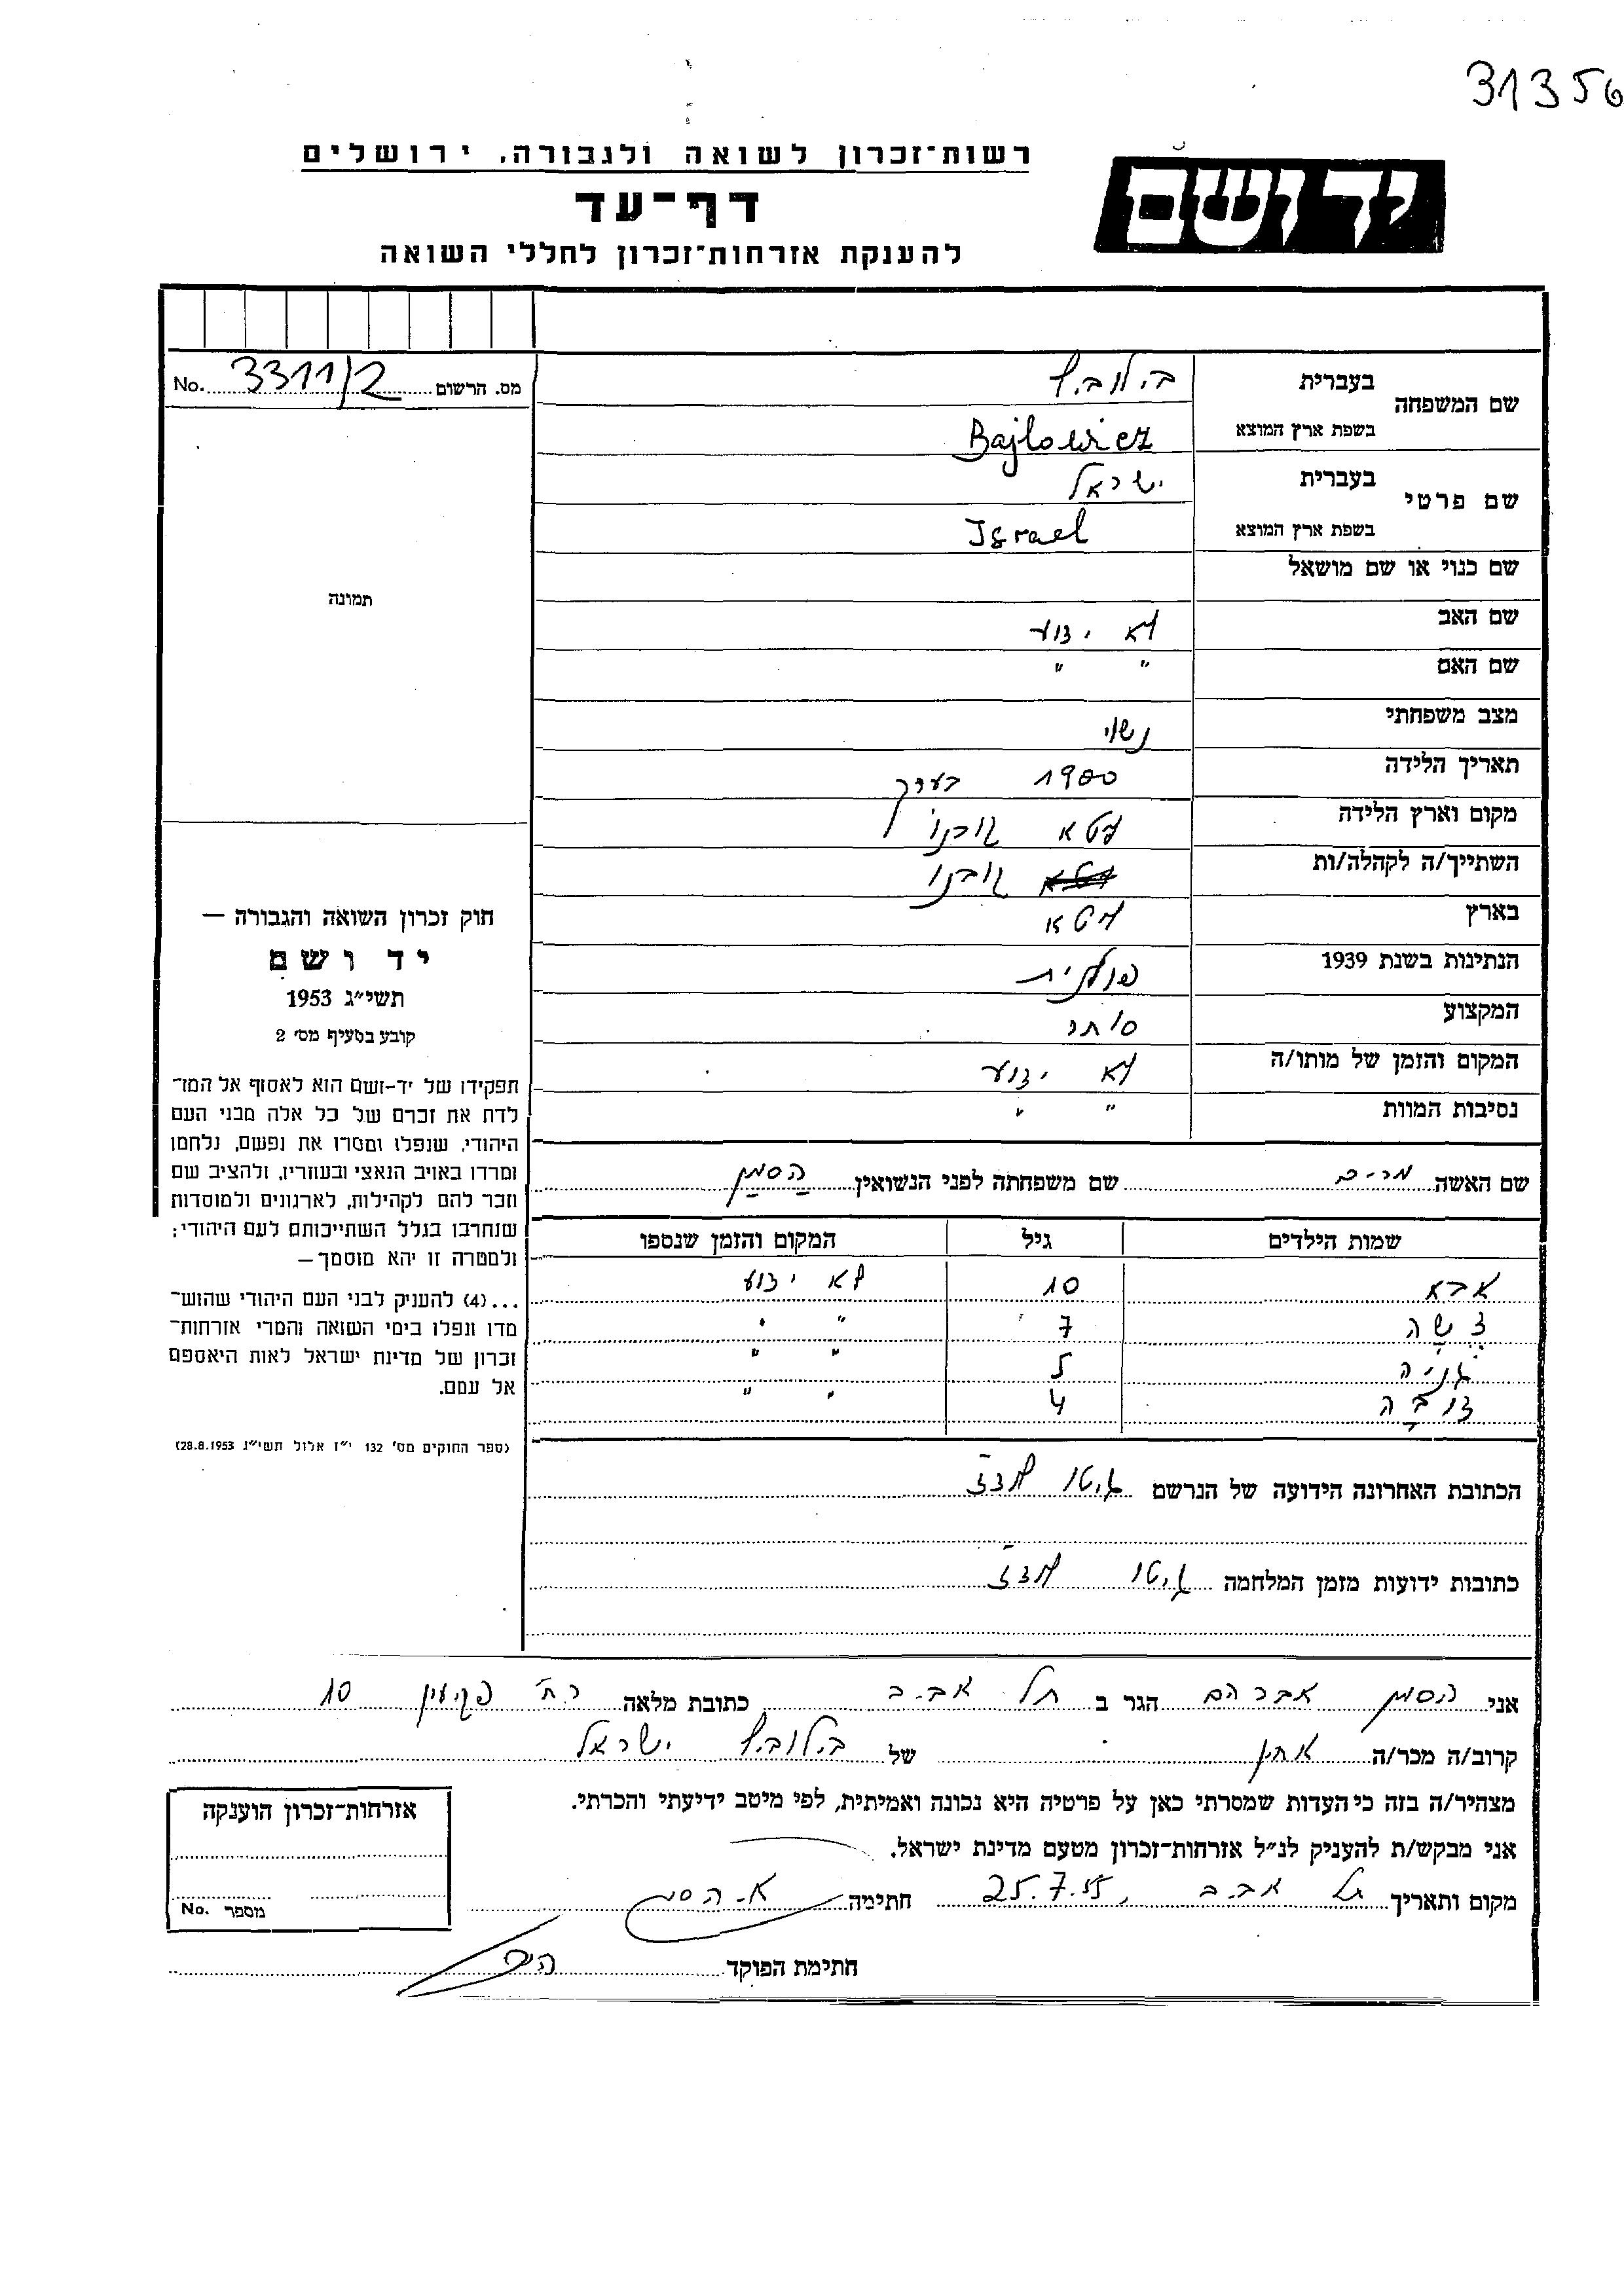 31356
יד ושם
רשות־זכרון לשואה ולגבורה, ירושלים
דף־עד
להענקת אזרחות־זכרון לחללי השואה
מס. הרשום 3311/2 No.
שם המשפחה
בעברית בילוביץ
בשפת ארץ המוצא Bajlowicz
שם פרטי
בעברית ישראל
בשפת ארץ המוצא Israel
שם כנוי או שם מושאל
שם האב לא ידוע
שם האם " "
מצב משפחתי נשוי
תאריך הלידה 1900 בערך
מקום וארץ הלידה ליטא
השתייך/ה לקהלה/ות
בארץ ליטא
הנתינות בשנת 1939 פולנית
המקצוע סוחר
המקום והזמן של מותו/ה לא ידוע
נסיבות המוות " "
תמונה
חוק זכרון השואה והגבורה —
יד ושם
תשי״ג 1953
קובע בסעיף מס׳ 2
תפקידו של יד-ושם הוא לאסוף אל המו־
לדת את זכרם של כל אלה מבני העם
היהודי, שנפלו ומסרו את נפשם, נלחמו
ומרדו באויב הנאצי ובעוזריו, ולהציב שם
וזכר להם לקהילות, לארגונים ולמוסדות
שנחרבו בגלל השתייכותם לעם היהודי;
ולמטרה זו יהא מוסמך —
...(4) להעניק לבני העם היהודי שהוש־
מדו ונפלו בימי השואה והמרי אזרחות־
זכרון של מדינת ישראל לאות היאספם
אל עמם.
(ספר החוקים מס׳ 132 י״ז אלול תשי״ג 28.8.1953)
שם האשה מרים שם משפחתה לפני הנשואין הסמן
שמות הילדים גיל המקום והזמן שנספו
אבא 10 לא ידוע
7 " "
גניה 5 " "
דובה 4 " "
הכתובת האחרונה הידועה של הנרשם גיטו לודז
כתובות ידועות מזמן המלחמה גיטו לודז
אני הסמן אברהם הגר ב תל אביב כתובת מלאה רח׳ פקיעין 10
קרוב/ה מכר/ה של בילוביץ ישראל
מצהיר/ה בזה כי העדות שמסרתי כאן על פרטיה היא נכונה ואמיתית, לפי מיטב ידיעתי והכרתי.
אני מבקש/ת להעניק לנ״ל אזרחות־זכרון מטעם מדינת ישראל.
מקום ותאריך תל אביב, 25.7.55 חתימה א. הסמן
חתימת הפוקד
אזרחות־זכרון הוענקה
מספר No.